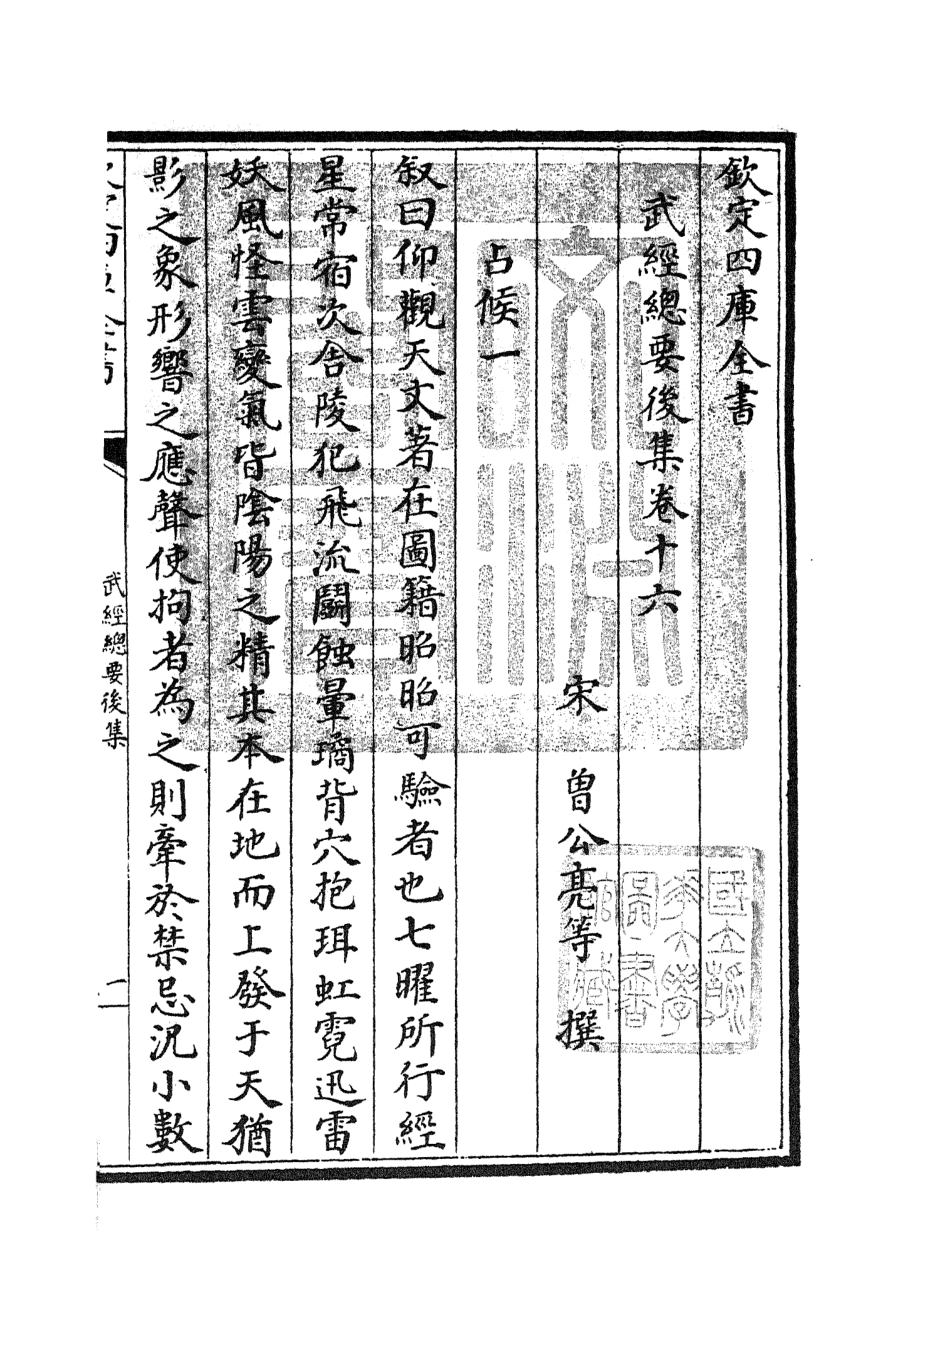 欽定四庫全書
武經總要後集卷十六
宋 曾公亮等 撰
占候一
叙曰仰觀天文著在圖籍昭昭可驗者也七曜所行經
星常宿次舍陵犯飛流鬬蝕暈璚背穴抱珥虹霓迅雷
妖風怪雲變氣皆陰陽之精其本在地而上發于天猶
影之象形響之應聲使拘者為之則牽於禁忌汎小數
武經總要後集